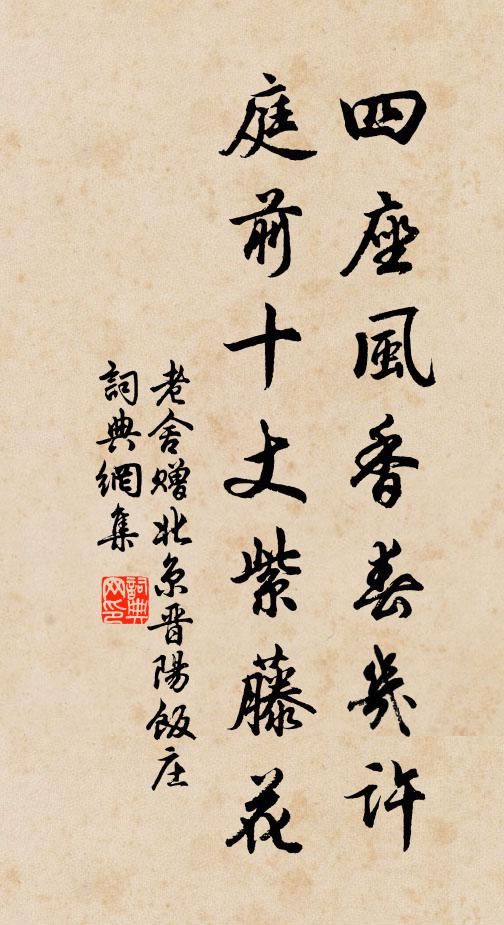 四座風香春幾許
庭前十丈紫藤花
老舍贈北京晋陽飯庄
詞典網集
詞典網印